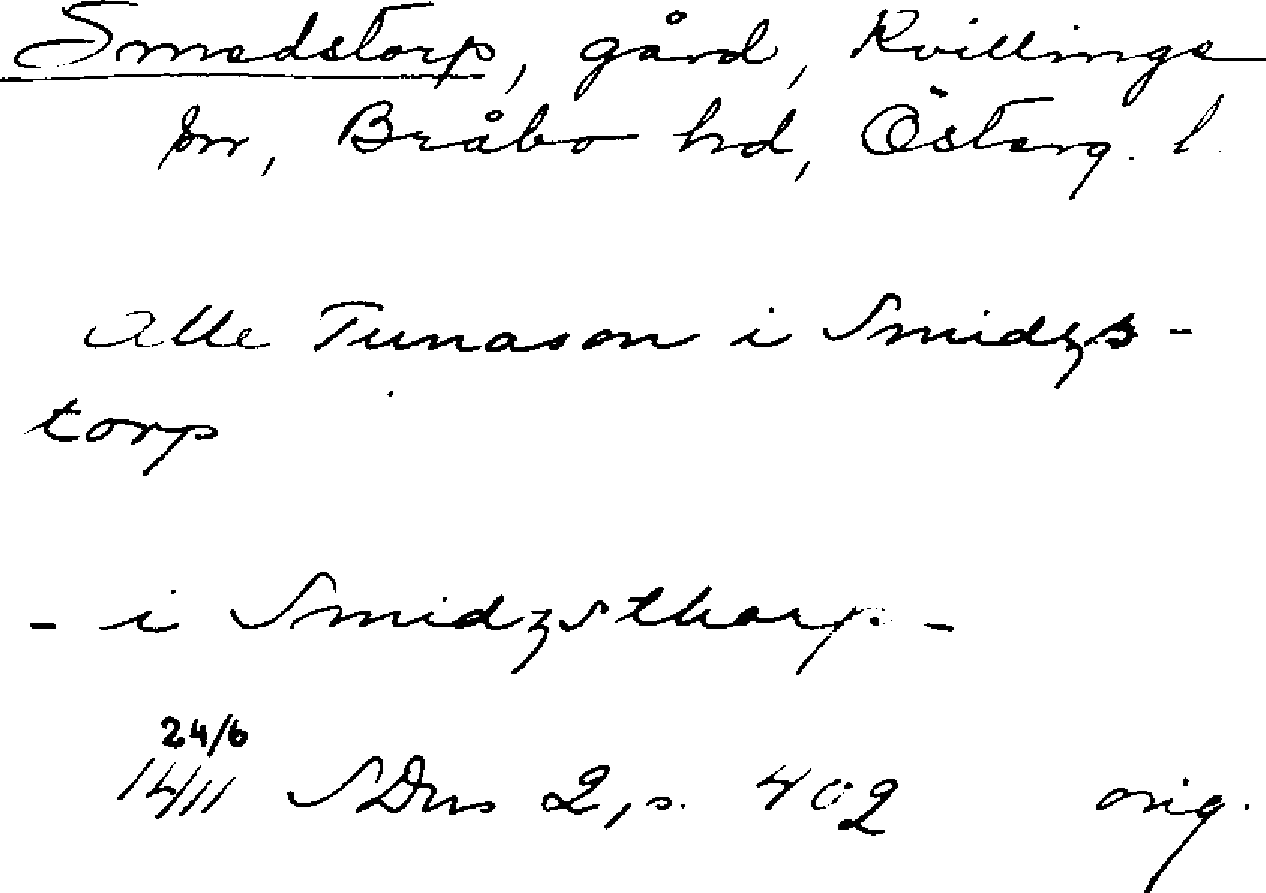 Smedstorp, gård, Kvillinge
sn, Bråbo hd, Österg. l.
Alle Tunason i Smidzs-
torp
- i Smidzsthorp. -
24/6
1411 SDns 2, s. 402 orig.